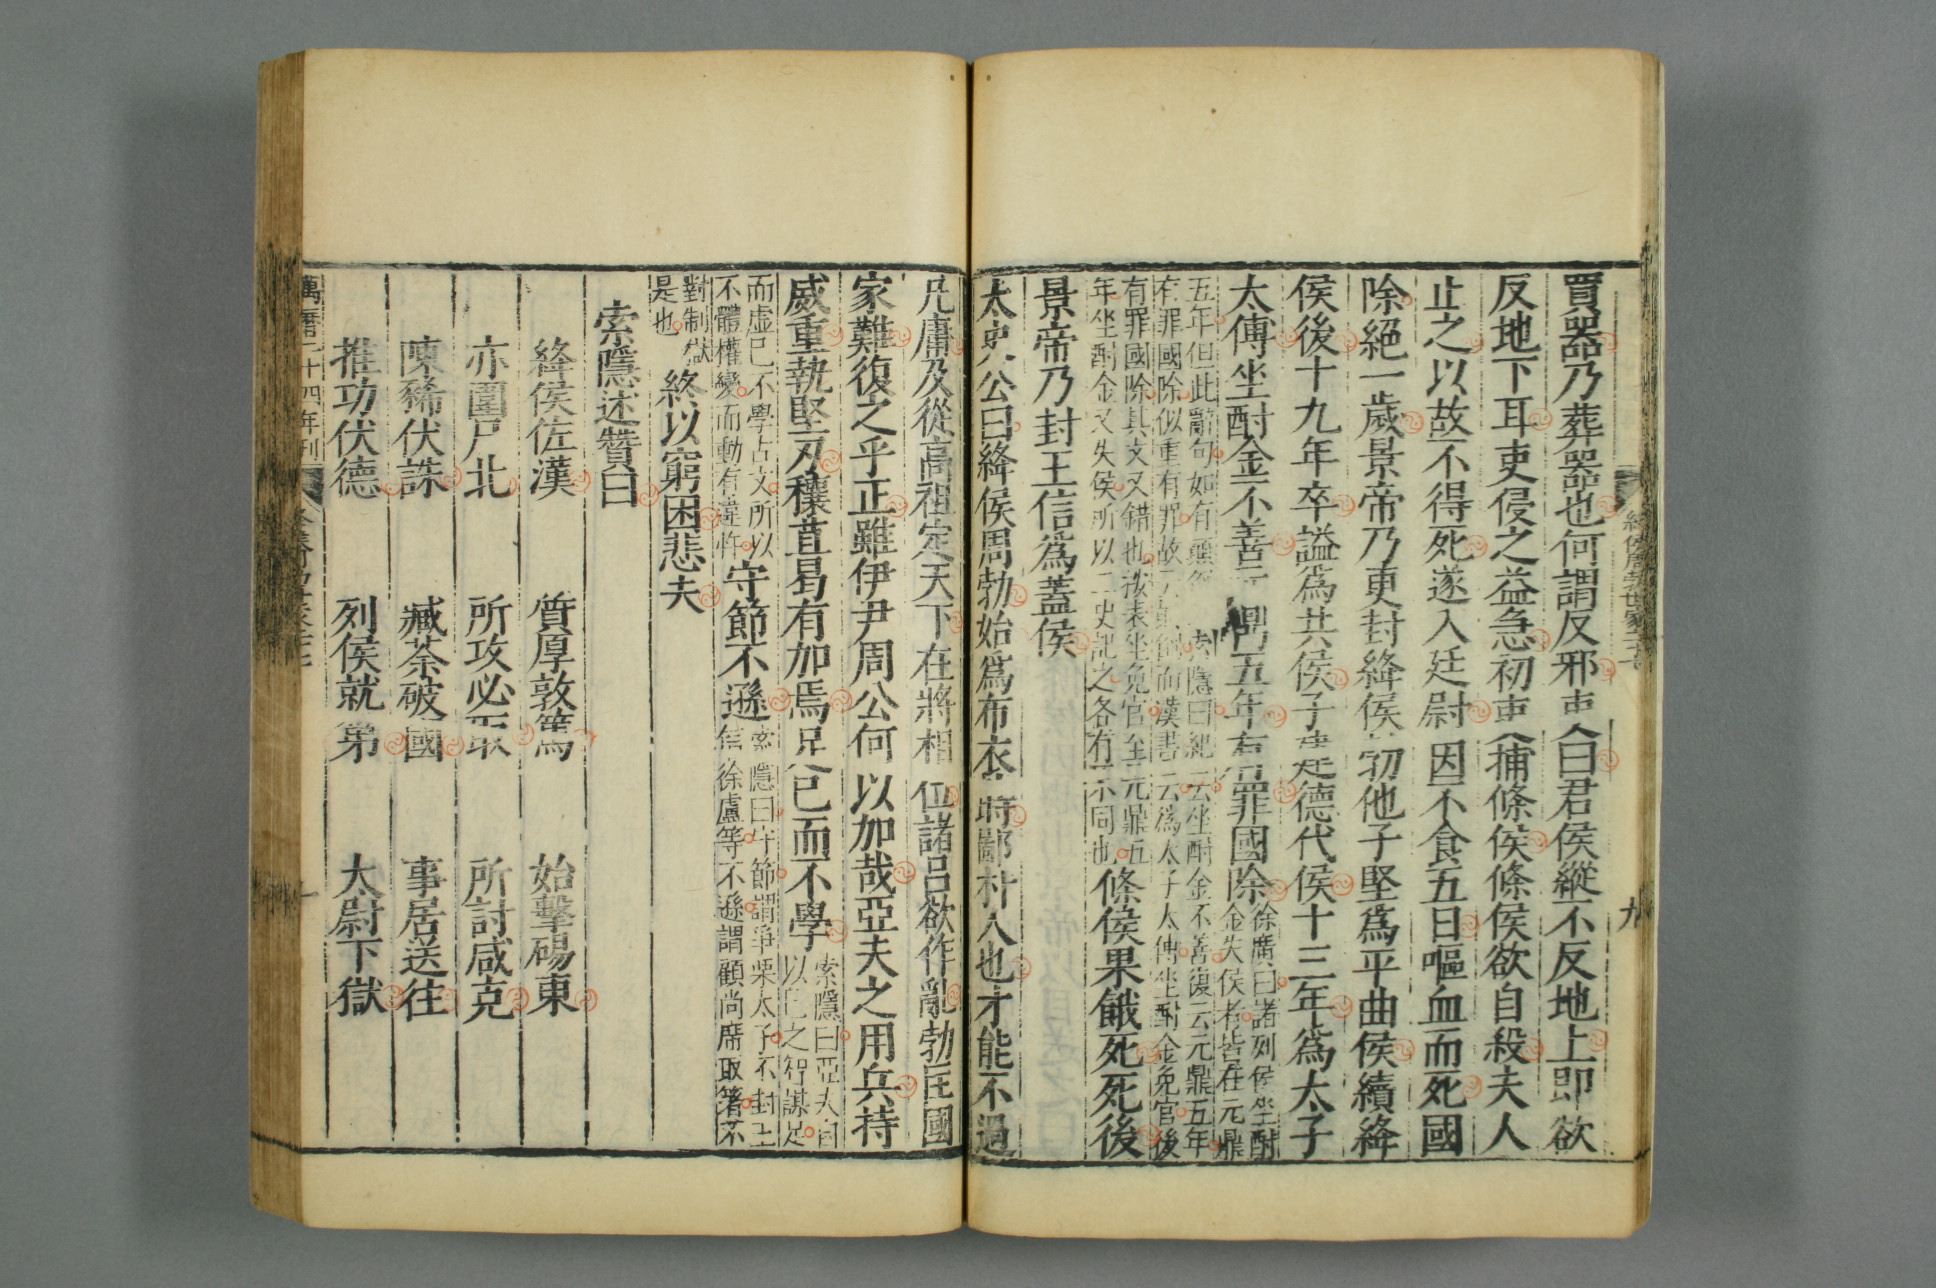 買器乃葬器也何謂反邪吏曰君侯縱不反地上即欲
反地下耳吏侵之益急初吏捕條侯條侯欲自殺夫人
止之以故不得死遂入廷尉因不食五日嘔血而死國
除絕一歲景帝乃更封絳侯勃他子堅爲平曲侯續絳
侯後十九年卒謚爲共侯子建德代侯十三年爲太子
太傅坐酎金不善元鼎五年有罪國除
徐廣曰諸列侯坐酎
金失侯者皆在元鼎
五年但此辭句如有
索隱曰紀云坐酎金不善復云元鼎五年
有罪國除似重有罪故
而漢書云爲太子太傅坐酎金免官後
有罪國除其文又錯也按表坐免官至元鼎五
年坐酎金又失侯所以二史記之各有不同也
條侯果餓死死後
景帝乃封王信爲蓋侯
太史公曰絳侯周勃始爲布衣時鄙朴人也才能不過
凡庸及從高祖定天下在將相位諸呂欲作亂勃匡國
家難復之乎正雖伊尹周公何以加哉亞夫之用兵持
威重執堅刃穰苴曷有加焉足己而不學
索隱曰亞夫自
以己之智謀足
而虛己不學古文所以
不體權變而動有違忤
守節不遜
索隱曰守節謂爭栗太子不封王
信徐盧等不遜謂顧尚席取箸不
對制獄
是也
終以窮困悲夫
索隱述贊曰
絳侯佐漢 質厚敦篤 始擊碭東
亦圍尸北 所攻必取 所討咸克
陳豨伏誅 臧荼破國 事居送往
推功伏德 列侯就第 太尉下獄
萬曆二十四年刊